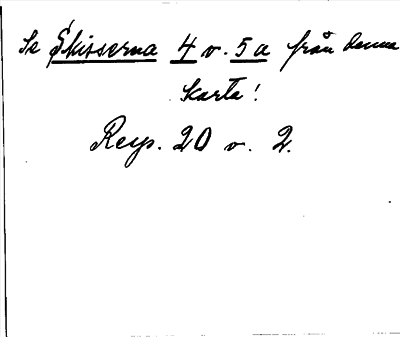 Se Skisserna 4 o. 5 a från denna
karta!
Resp. 20 o. 2.